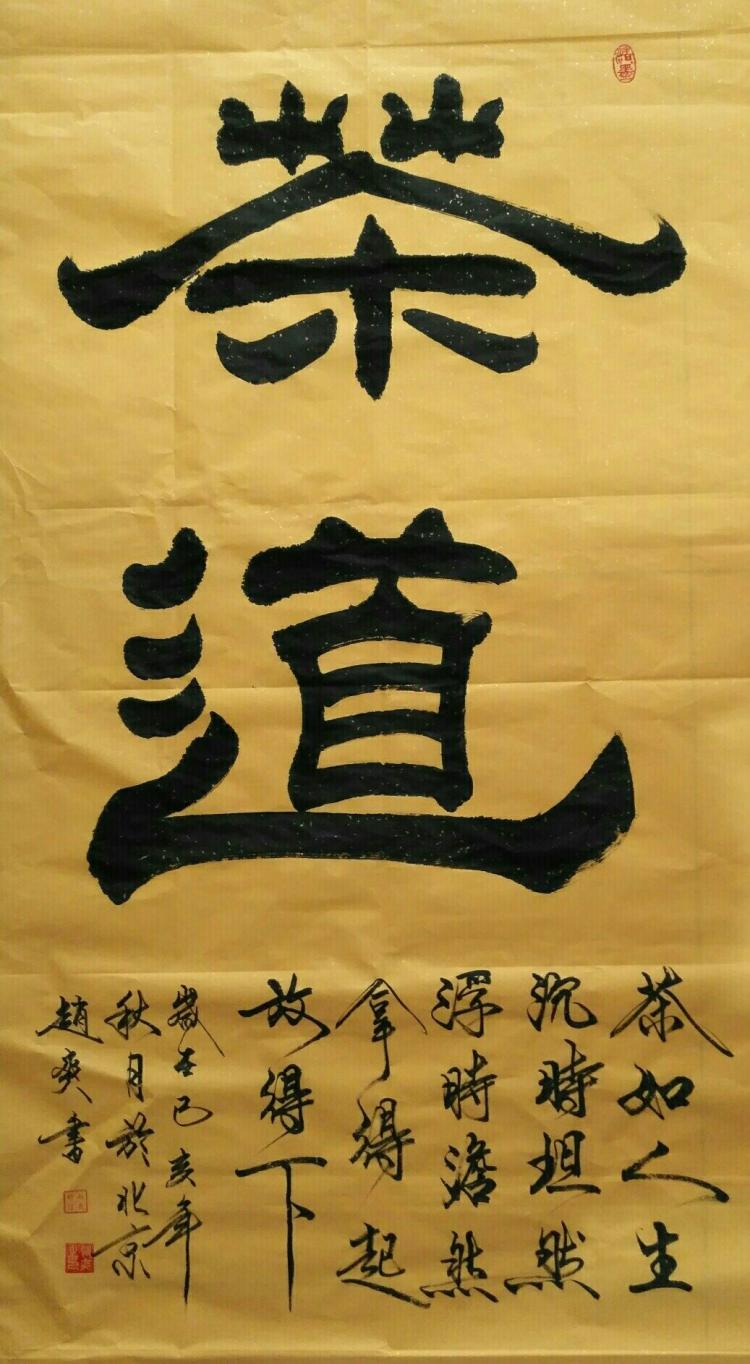 茶道
茶如人生
沉時坦然
浮時澹然
拿得起
放得下
歲在己亥年
秋月於北京
趙爽書